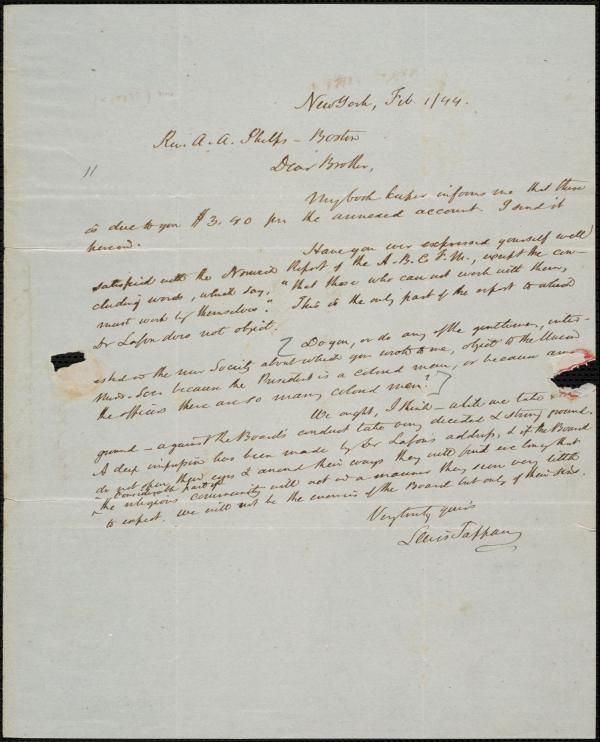 New York, Feb. 1/44.
Rev. A. A. Phelps - Boston
11
Dear Brother,
My book keeper informs me that there
is due to you $3.40 per the annexed account. I send it
hereon.
Have you ever expressed yourself well
satisfied with the Norwich Report of the A.B.C.F.M., except the con-
cluding words, which say, "that those who can not work with them,
must work by themselves." This is the only part of the report to which
Dr Lafon does not object.
[Do you, or do any of the gentlemen, inter-
ested in the new Society about which you wrote to me, object to the Union
Miss. Soc. because the President is a colored man, or because among
the officers there are so many colored men?]
We ought, I think - while we take
ground - against the Board's conduct take very decided & strong ground.
A deep impression has been made by Dr Lafon's address, & if the Board
do not open their eyes & amend their ways they will find ere long that
considerable part of
the religious community will act in a manner they seem very little
to expect. We will not be the enemies of the Board but only of their sins.
Very truly yours
Lewis Tappan